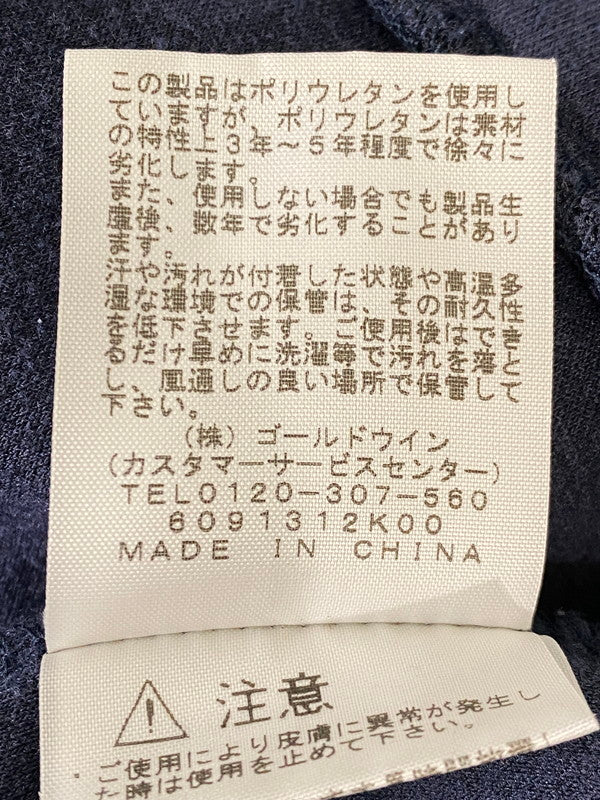 この製品はポリウレタンを使用し
ていますが、ポリウレタンは素材
の特性上3年〜5年程度で徐々に
劣化します。
また、使用しない場合でも製品生
産後、数年で劣化することがあり
ます。
汗や汚れが付着した状態や高温多
湿な環境での保管は、その耐久性
を低下させます。ご使用後はできと
るだけ早めに洗濯等で汚れを落とし
し、風通しの良い場所で保管して
下さい。
(株)ゴールドウイン
(カスタマーサービスセンター)
TEL0120-307-560
6091312K00
MADE IN CHINA
注意
ご使用により皮膚に異常が発生し
た時は使用を止めて下さい。